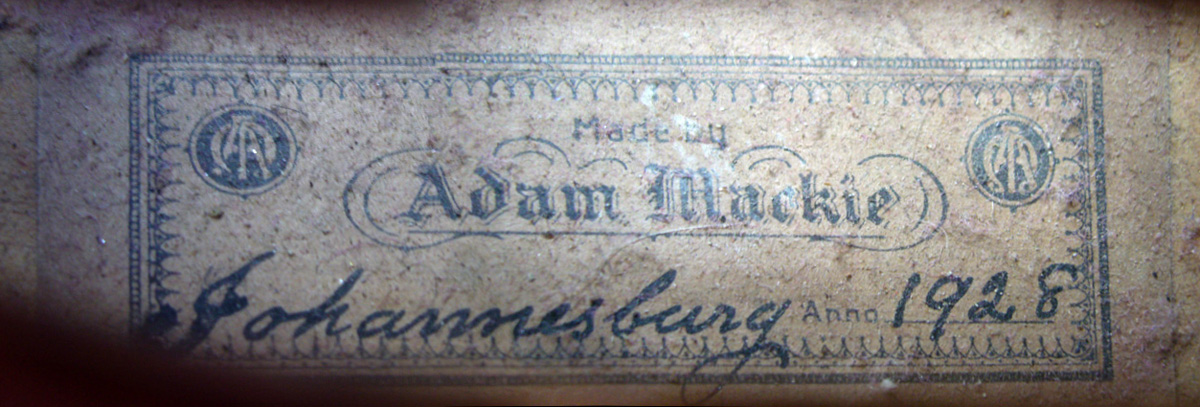 Made by
Adam Mackie
Johannesburg Anno 1928